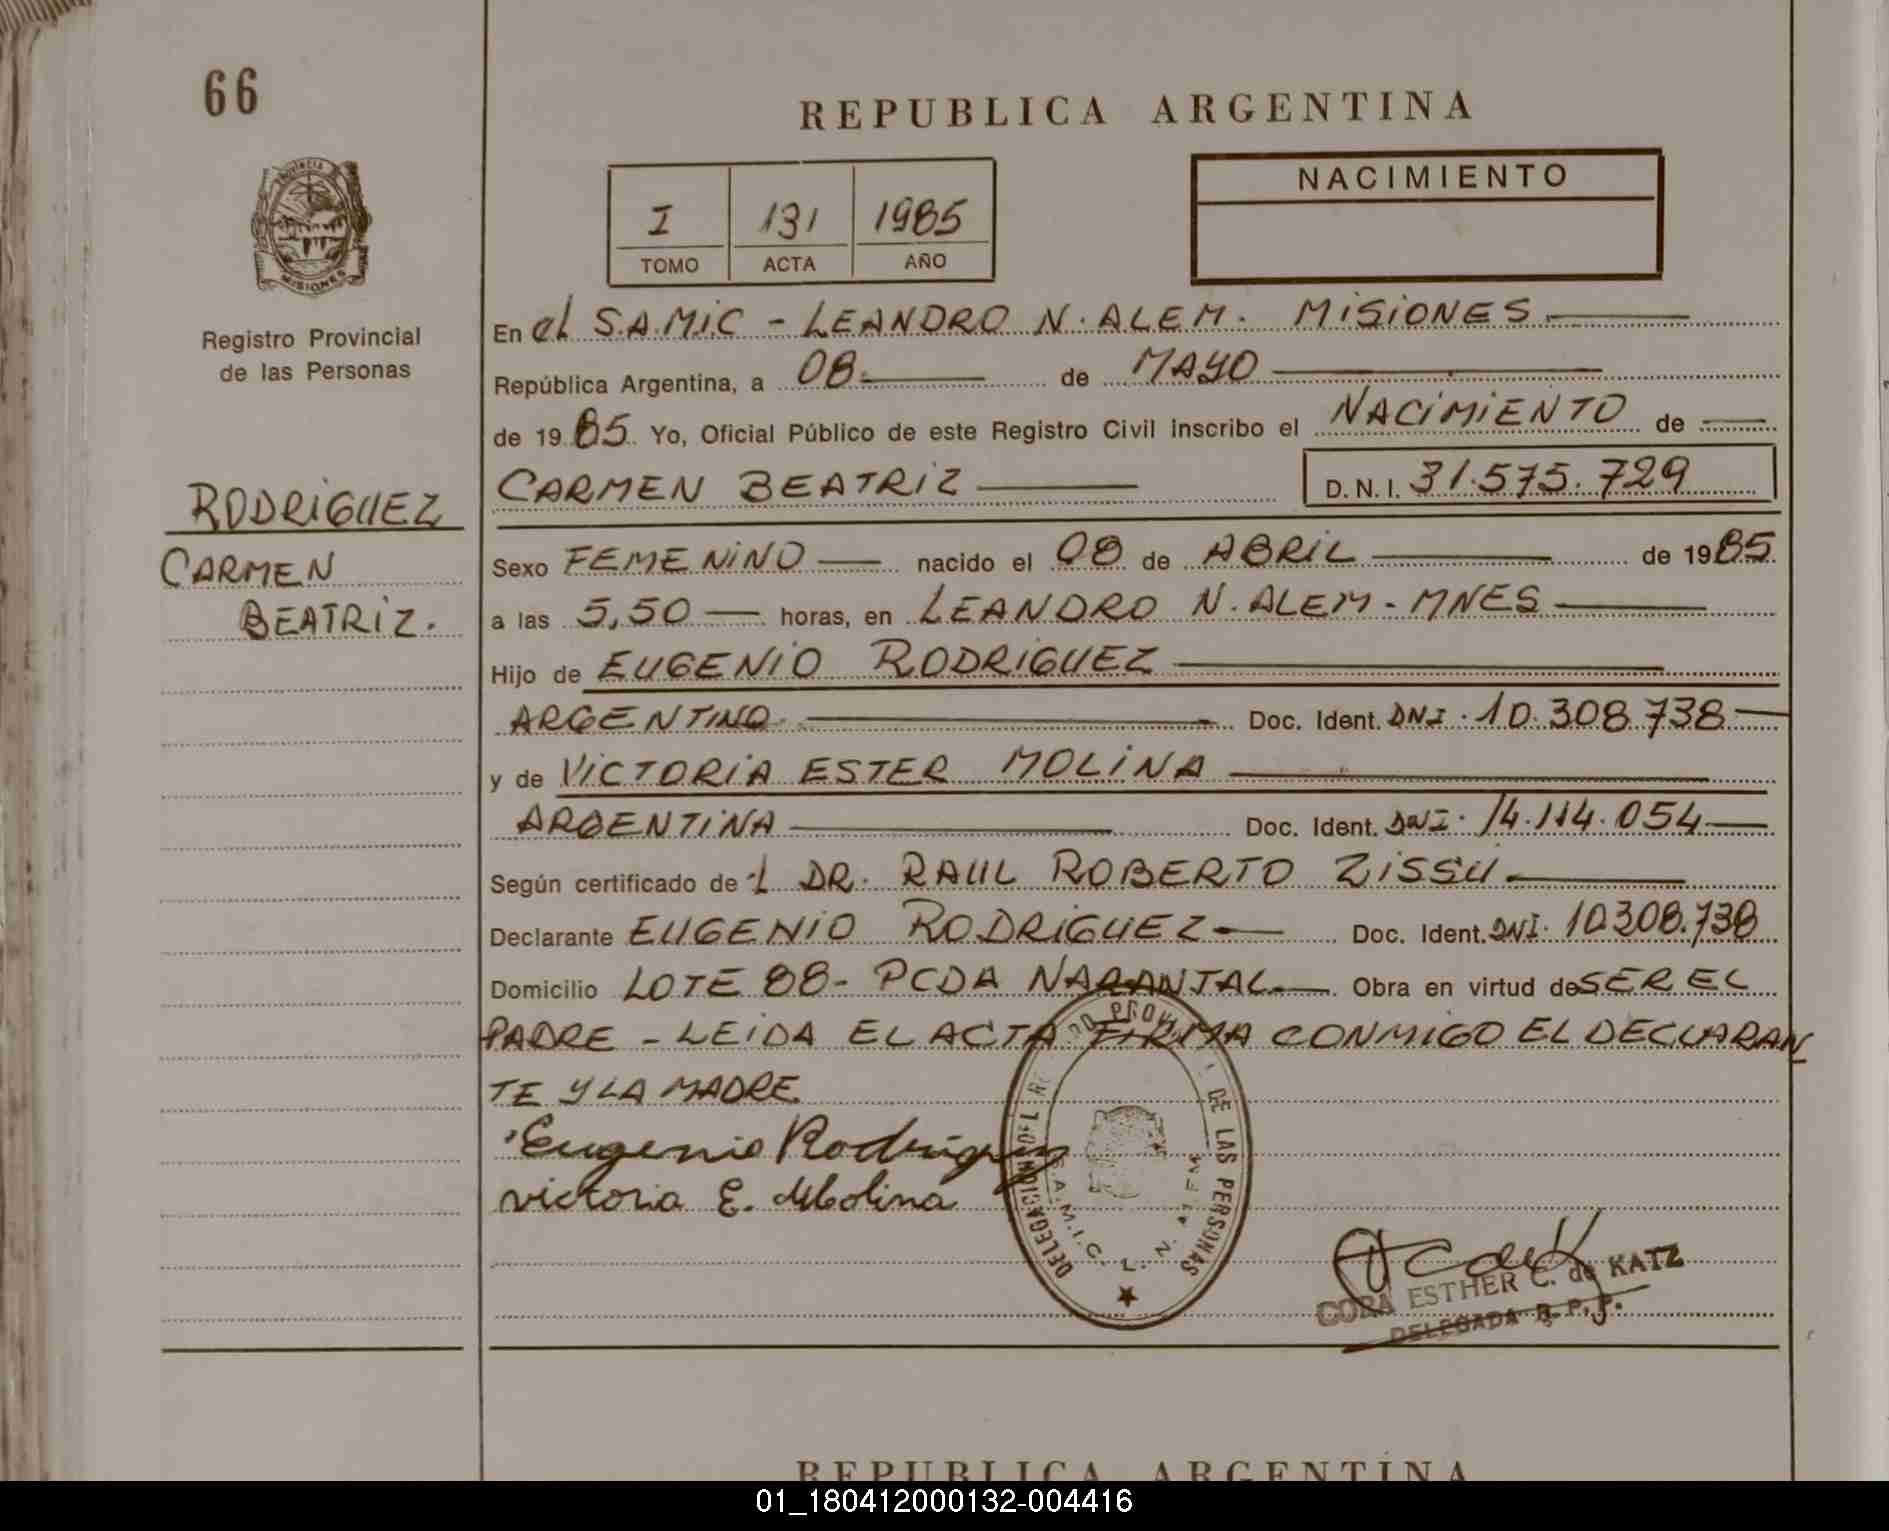 66
REPUBLICA ARGENTINA
PROVINCIA DE
MISIONES
Registro Provincial
de las Personas
I 131 1985
TOMO ACTA AÑO
NACIMIENTO
En el S.A.MIC - LEANDRO N. ALEM. MISIONES
República Argentina, a 08 de MAYO
de 19 85 Yo, Oficial Público de este Registro Civil inscribo el NACIMIENTO de
CARMEN BEATRIZ D. N. I. 31.575.729
RODRIGUEZ
CARMEN
BEATRIZ.
Sexo FEMENINO nacido el 08 de ABRIL de 19 85
a las 5,50 horas, en LEANDRO N. ALEM - MNES
Hijo de EUGENIO RODRIGUEZ
ARGENTINO Doc. Ident. DNI. 10.308.738
y de VICTORIA ESTER MOLINA
ARGENTINA Doc. Ident. DNI. 14.114.054
Según certificado de l DR. RAUL ROBERTO ZISSU
Declarante EUGENIO RODRIGUEZ Doc. Ident. DNI. 10.308.738
Domicilio LOTE 88 - PCDA NARANJAL Obra en virtud de SER EL
PADRE - LEIDA EL ACTA FIRMA CONMIGO EL DECLARAN
TE Y LA MADRE
Eugenio Rodriguez
victoria E. Molina
DELEGACION DEL PROVI DE LAS PERSONAS
S.A.M.I.C. L. N. ALEM
CORA ESTHER C. de KATZ
DELEGADA R. P. P.
REPUBLICA ARGENTINA
01_180412000132-004416